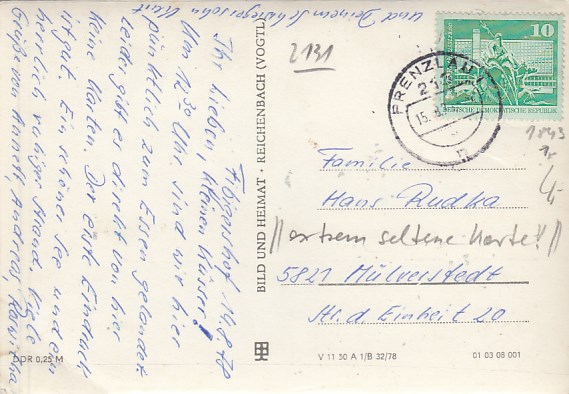 Ihr Lieben, kleinen Kaiser!
Um 30 Uhr sind wir hier
pünktlich zum Essen gelandet.
Leider gibt es direkt von hier
keine Karten. Der erste Eindruck
ist gut. Ein schöner See und ein
herrlich ruhiger Strand. Viele
Grüße von Annett, Andreas
und Deinem Schwiegersohn
BILD UND HEIMAT · REICHENBACH (VOGTL)
DDR 0,25 M
2131
10
DEUTSCHE DEMOKRATISCHE REPUBLIK
PRENZLAU
1843
4,-
Familie
Hans Rudka
//extrem seltene Karte!!//
5821 Mülverstedt
Str. d Einheit 20
V 11 50 A 1/B 32/78
01 03 08 001